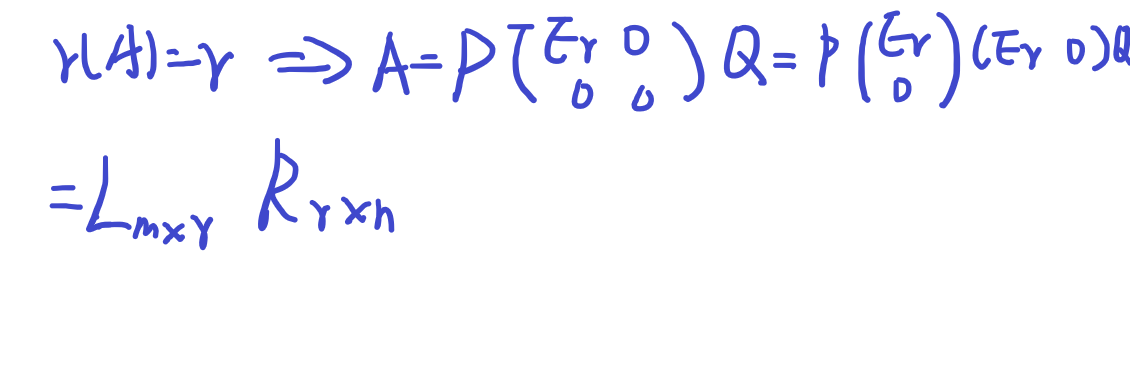 r(A)=r ⇒ A=P(Er 0 0 0)Q=P(Er 0)(Er 0)Q
=L m×r R r×n